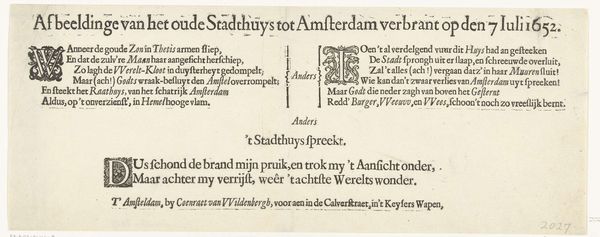 Afbeeldinge van het oude Stadthuys tot Amsterdam verbrant op den 7 Iuli 1652.
WAnneer de goude Zon in Thetis armen sliep,
En dat de zulv're Maan haar aangesicht herschiep,
Zo lagh de VVerelt-Kloot in duysterheyt gedompelt;
Maar (ach!) Godts wraak-besluyt den Amstel overrompelt;
En steekt het Raathuys, van het schatrijk Amsterdam
Aldus, op 't onverzienst', in Hemel hooge vlam.
Anders
TOen 't al verdelgend vuur dit Huys had an gesteeken
De Stadt sprongh uit er slaap, en schreeuwde overluit,
Zal 't alles (ach!) vergaan datz' in haar Muuren sluit!
Wie kan dan 't zwaar verlies van Amsterdam uyt spreeken!
Maar Godt die neder zagh van boven het Gesternt
Redd' Burger, VVeeuw, en VVees, schoon't noch zo vreeslijk bernt.
Anders
't Stadthuys spreekt.
DUs schond de brand mijn pruik, en trok my 't Aansicht onder,
Maar achter my verrijst, weêr 't achtste Werelts wonder.
T' Amsteldam, by Coenraet van VVildenbergh, voor aen in de Calverstraet, in't Keysers Wapen,
2027.